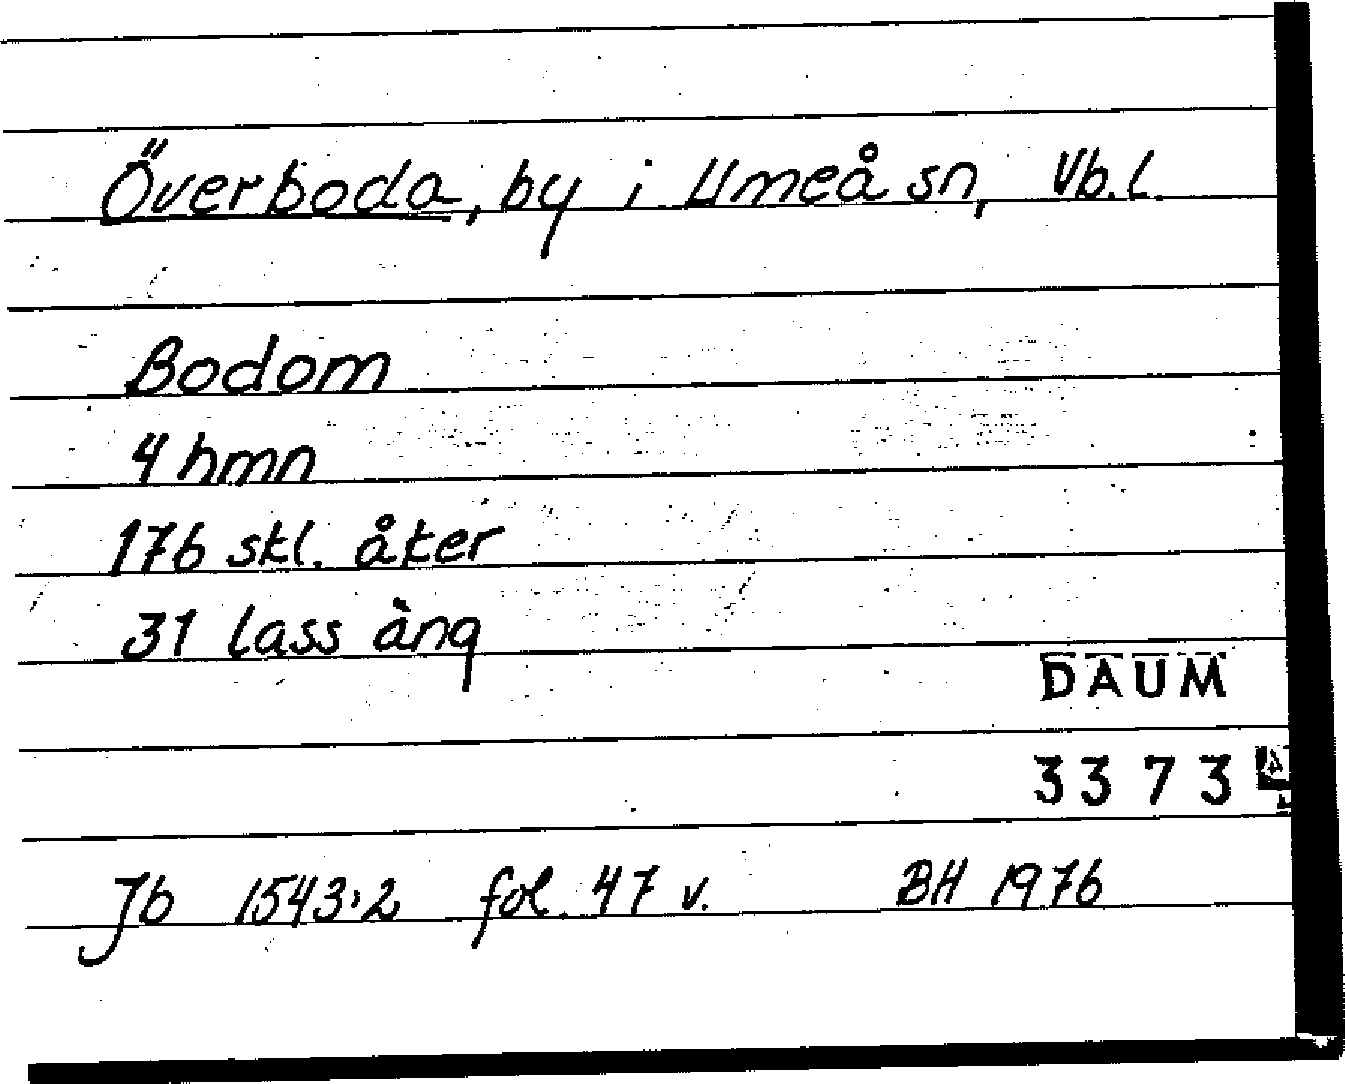 Överboda, by i Umeå sn, Vb.l.
Bodom
4 hmn
176 skl. åker
31 lass äng
DAUM
3373
Jb 1543:2 fol. 47 v. BH 1976